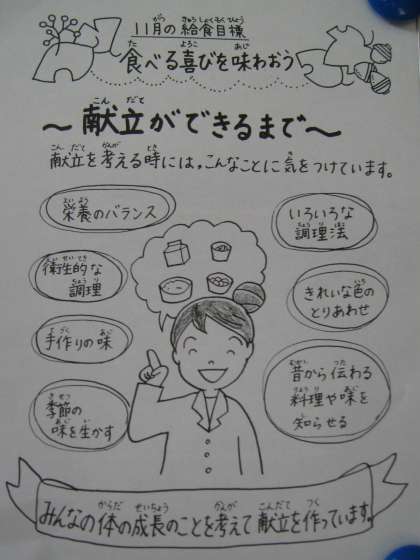 11月の給食目標
食べる喜びを味わおう
～献立ができるまで～
献立を考える時には、こんなことに気をつけています。
栄養のバランス
衛生的な
調理
手作りの味
季節の
味を生かす
いろいろな
調理法
きれいな色の
とりあわせ
昔から伝わる
料理や味を
知らせる
みんなの体の成長のことを考えて献立を作っています。